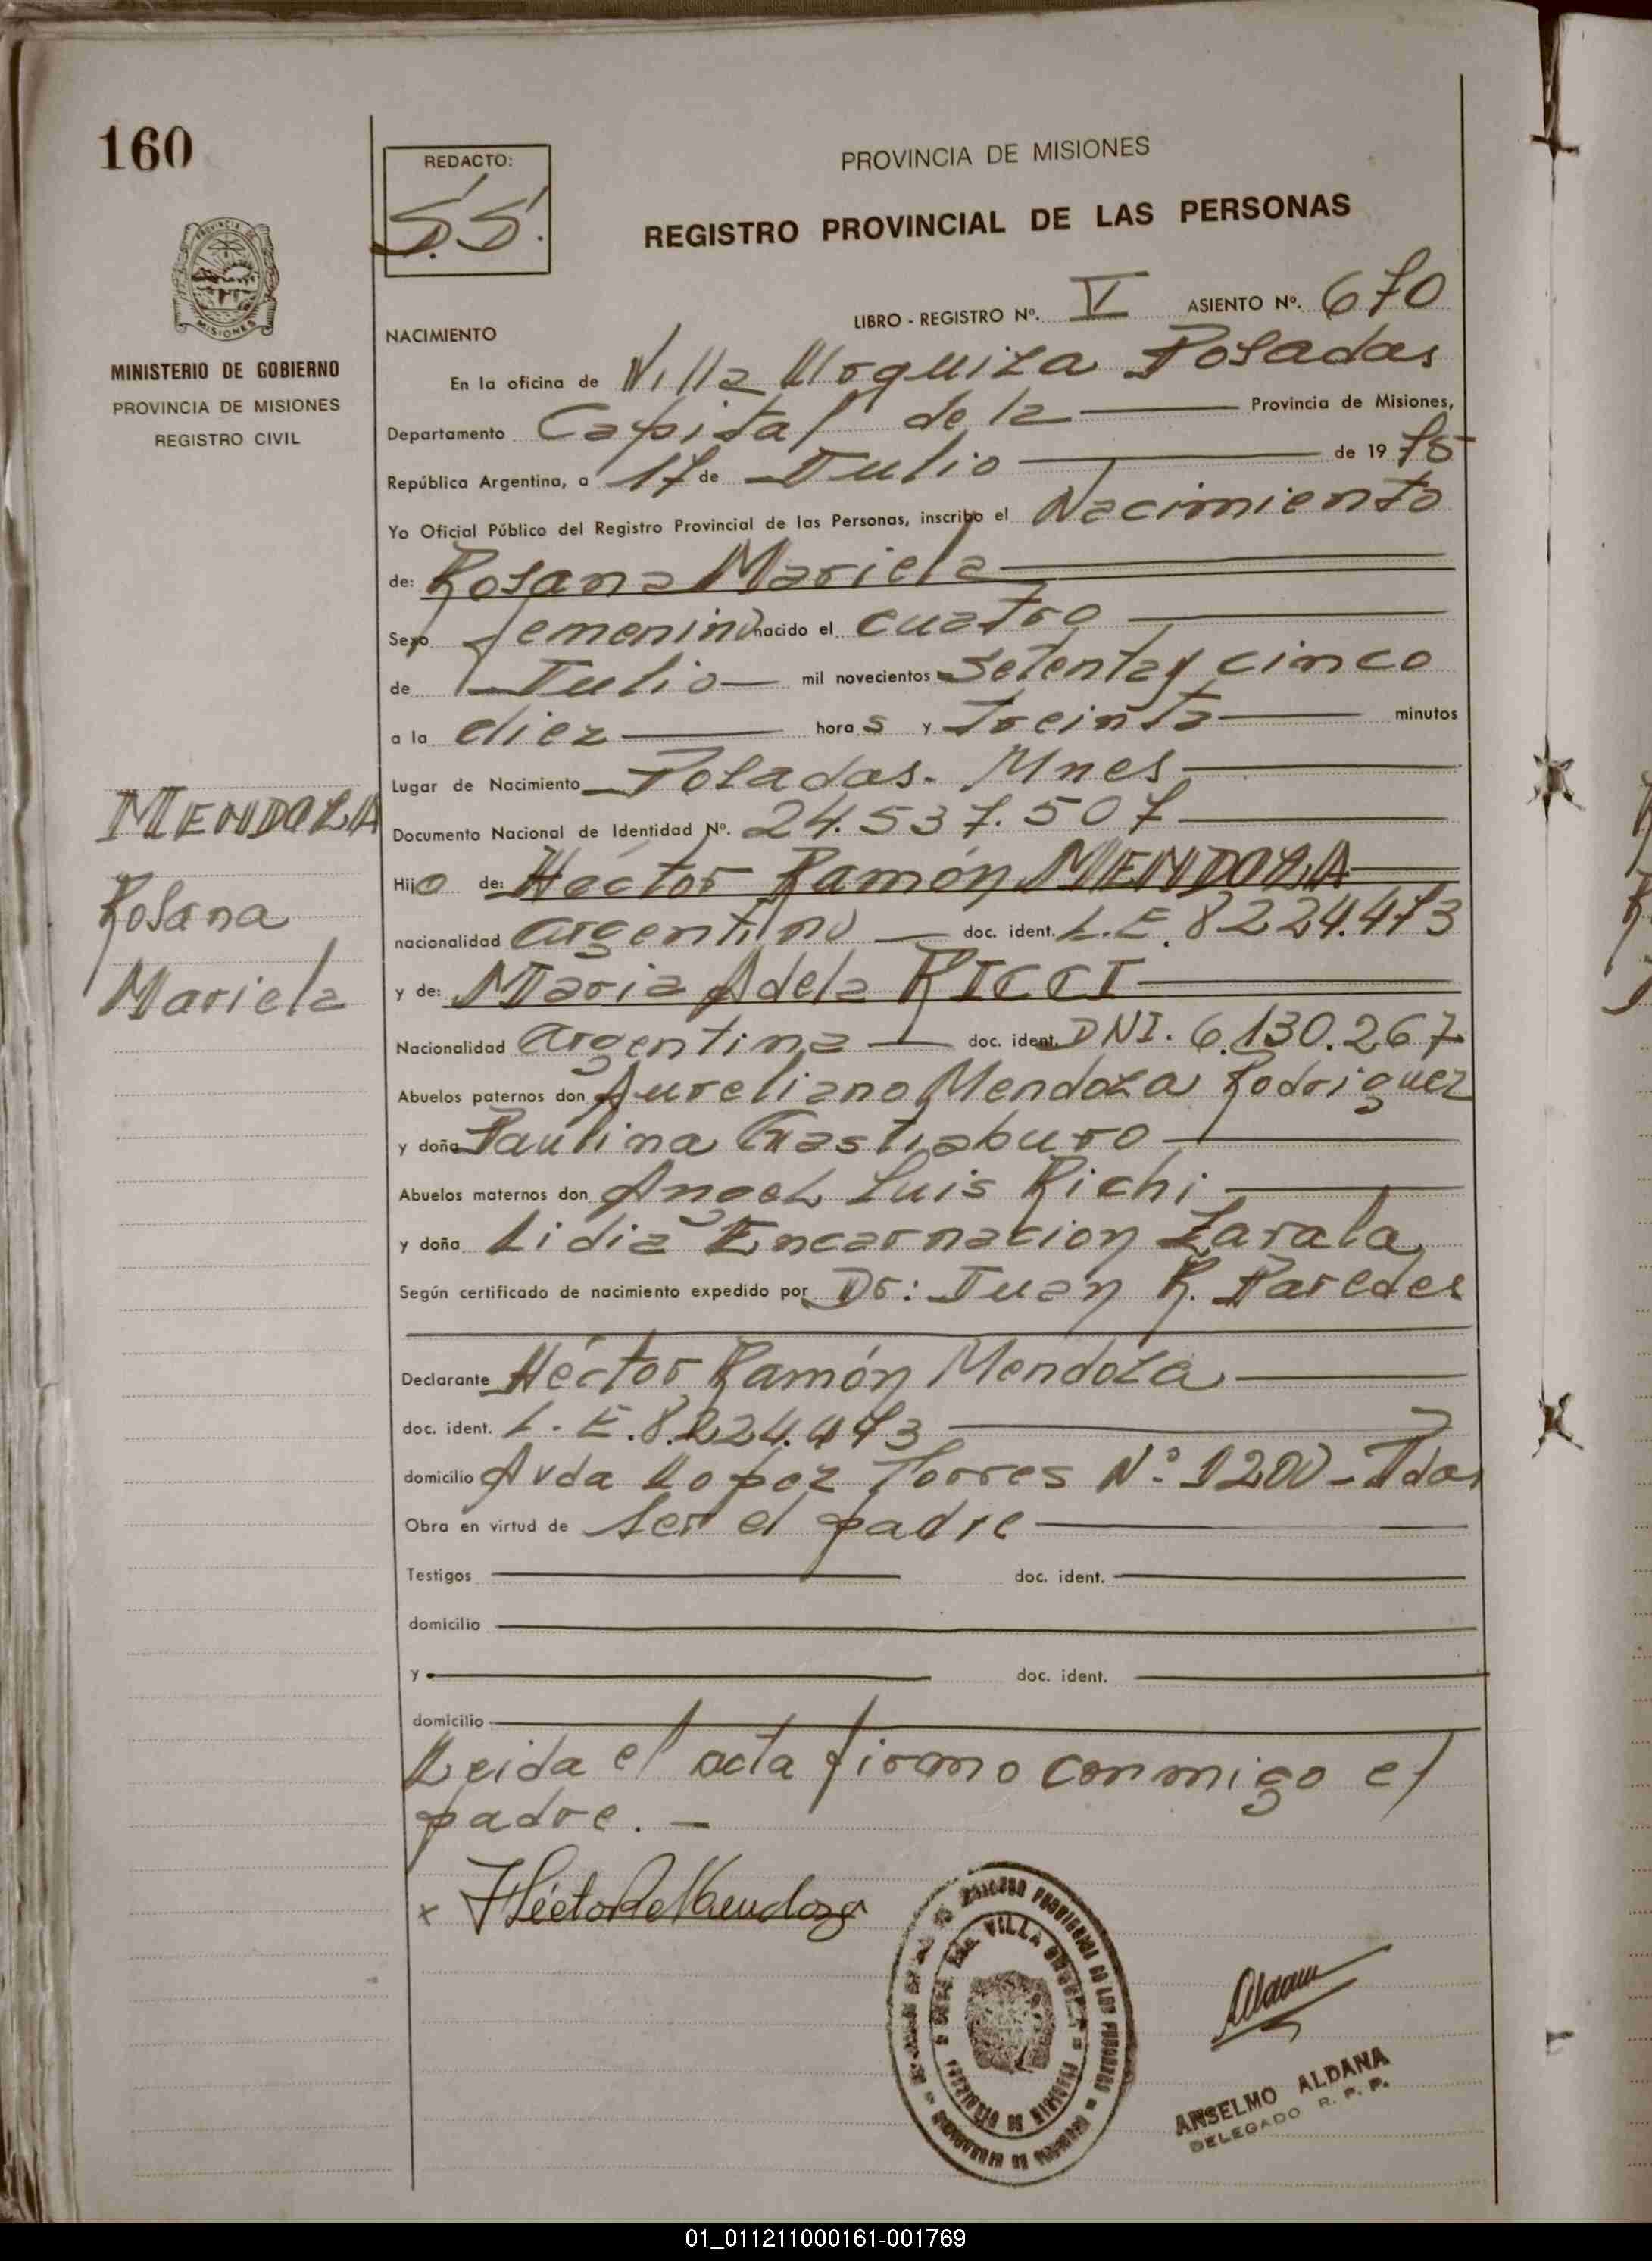 160
REDACTO:
S.S.
PROVINCIA DE MISIONES
REGISTRO PROVINCIAL DE LAS PERSONAS
MISIONES
MINISTERIO DE GOBIERNO
PROVINCIA DE MISIONES
REGISTRO CIVIL
LIBRO - REGISTRO Nº. V ASIENTO Nº. 670
NACIMIENTO
En la oficina de Villa Urquiza Posadas
Departamento Capital de la Provincia de Misiones,
República Argentina, a 17 de Julio de 1975
Yo Oficial Público del Registro Provincial de las Personas, inscribo el Nacimiento
de: Rosana Mariela
Sexo femenino nacido el cuatro
de Julio mil novecientos setenta y cinco
a la diez horas y treinta minutos
Lugar de Nacimiento Posadas. Mnes
Documento Nacional de Identidad Nº. 24.537.507
MENDOZA
Rosana
Mariela
Hija de: Héctor Ramón MENDOZA
nacionalidad argentino doc. ident. L.E. 8224.473
y de: Maria Adela RICCI
Nacionalidad argentina doc. ident. DNI. 6.130.267
Abuelos paternos don Aureliano Mendoza Rodriguez
y doña Paulina Gastiaburo
Abuelos maternos don Angel Luis Richi
y doña Lidia Encarnacion Zarala
Según certificado de nacimiento expedido por Dr: Juan R. Paredes
Declarante Héctor Ramón Mendoza
doc. ident. L.E.8.224.473
domicilio Avda Lopez Torres Nº 1200 - Pdas
Obra en virtud de ser el padre
Testigos doc. ident.
domicilio
y doc. ident.
domicilio
Leida el acta firmo conmigo el
padre. -
x Héctor R Mendoza
VILLA
Aldana
ANSELMO ALDANA
DELEGADO R. P. P.
01_011211000161-001769